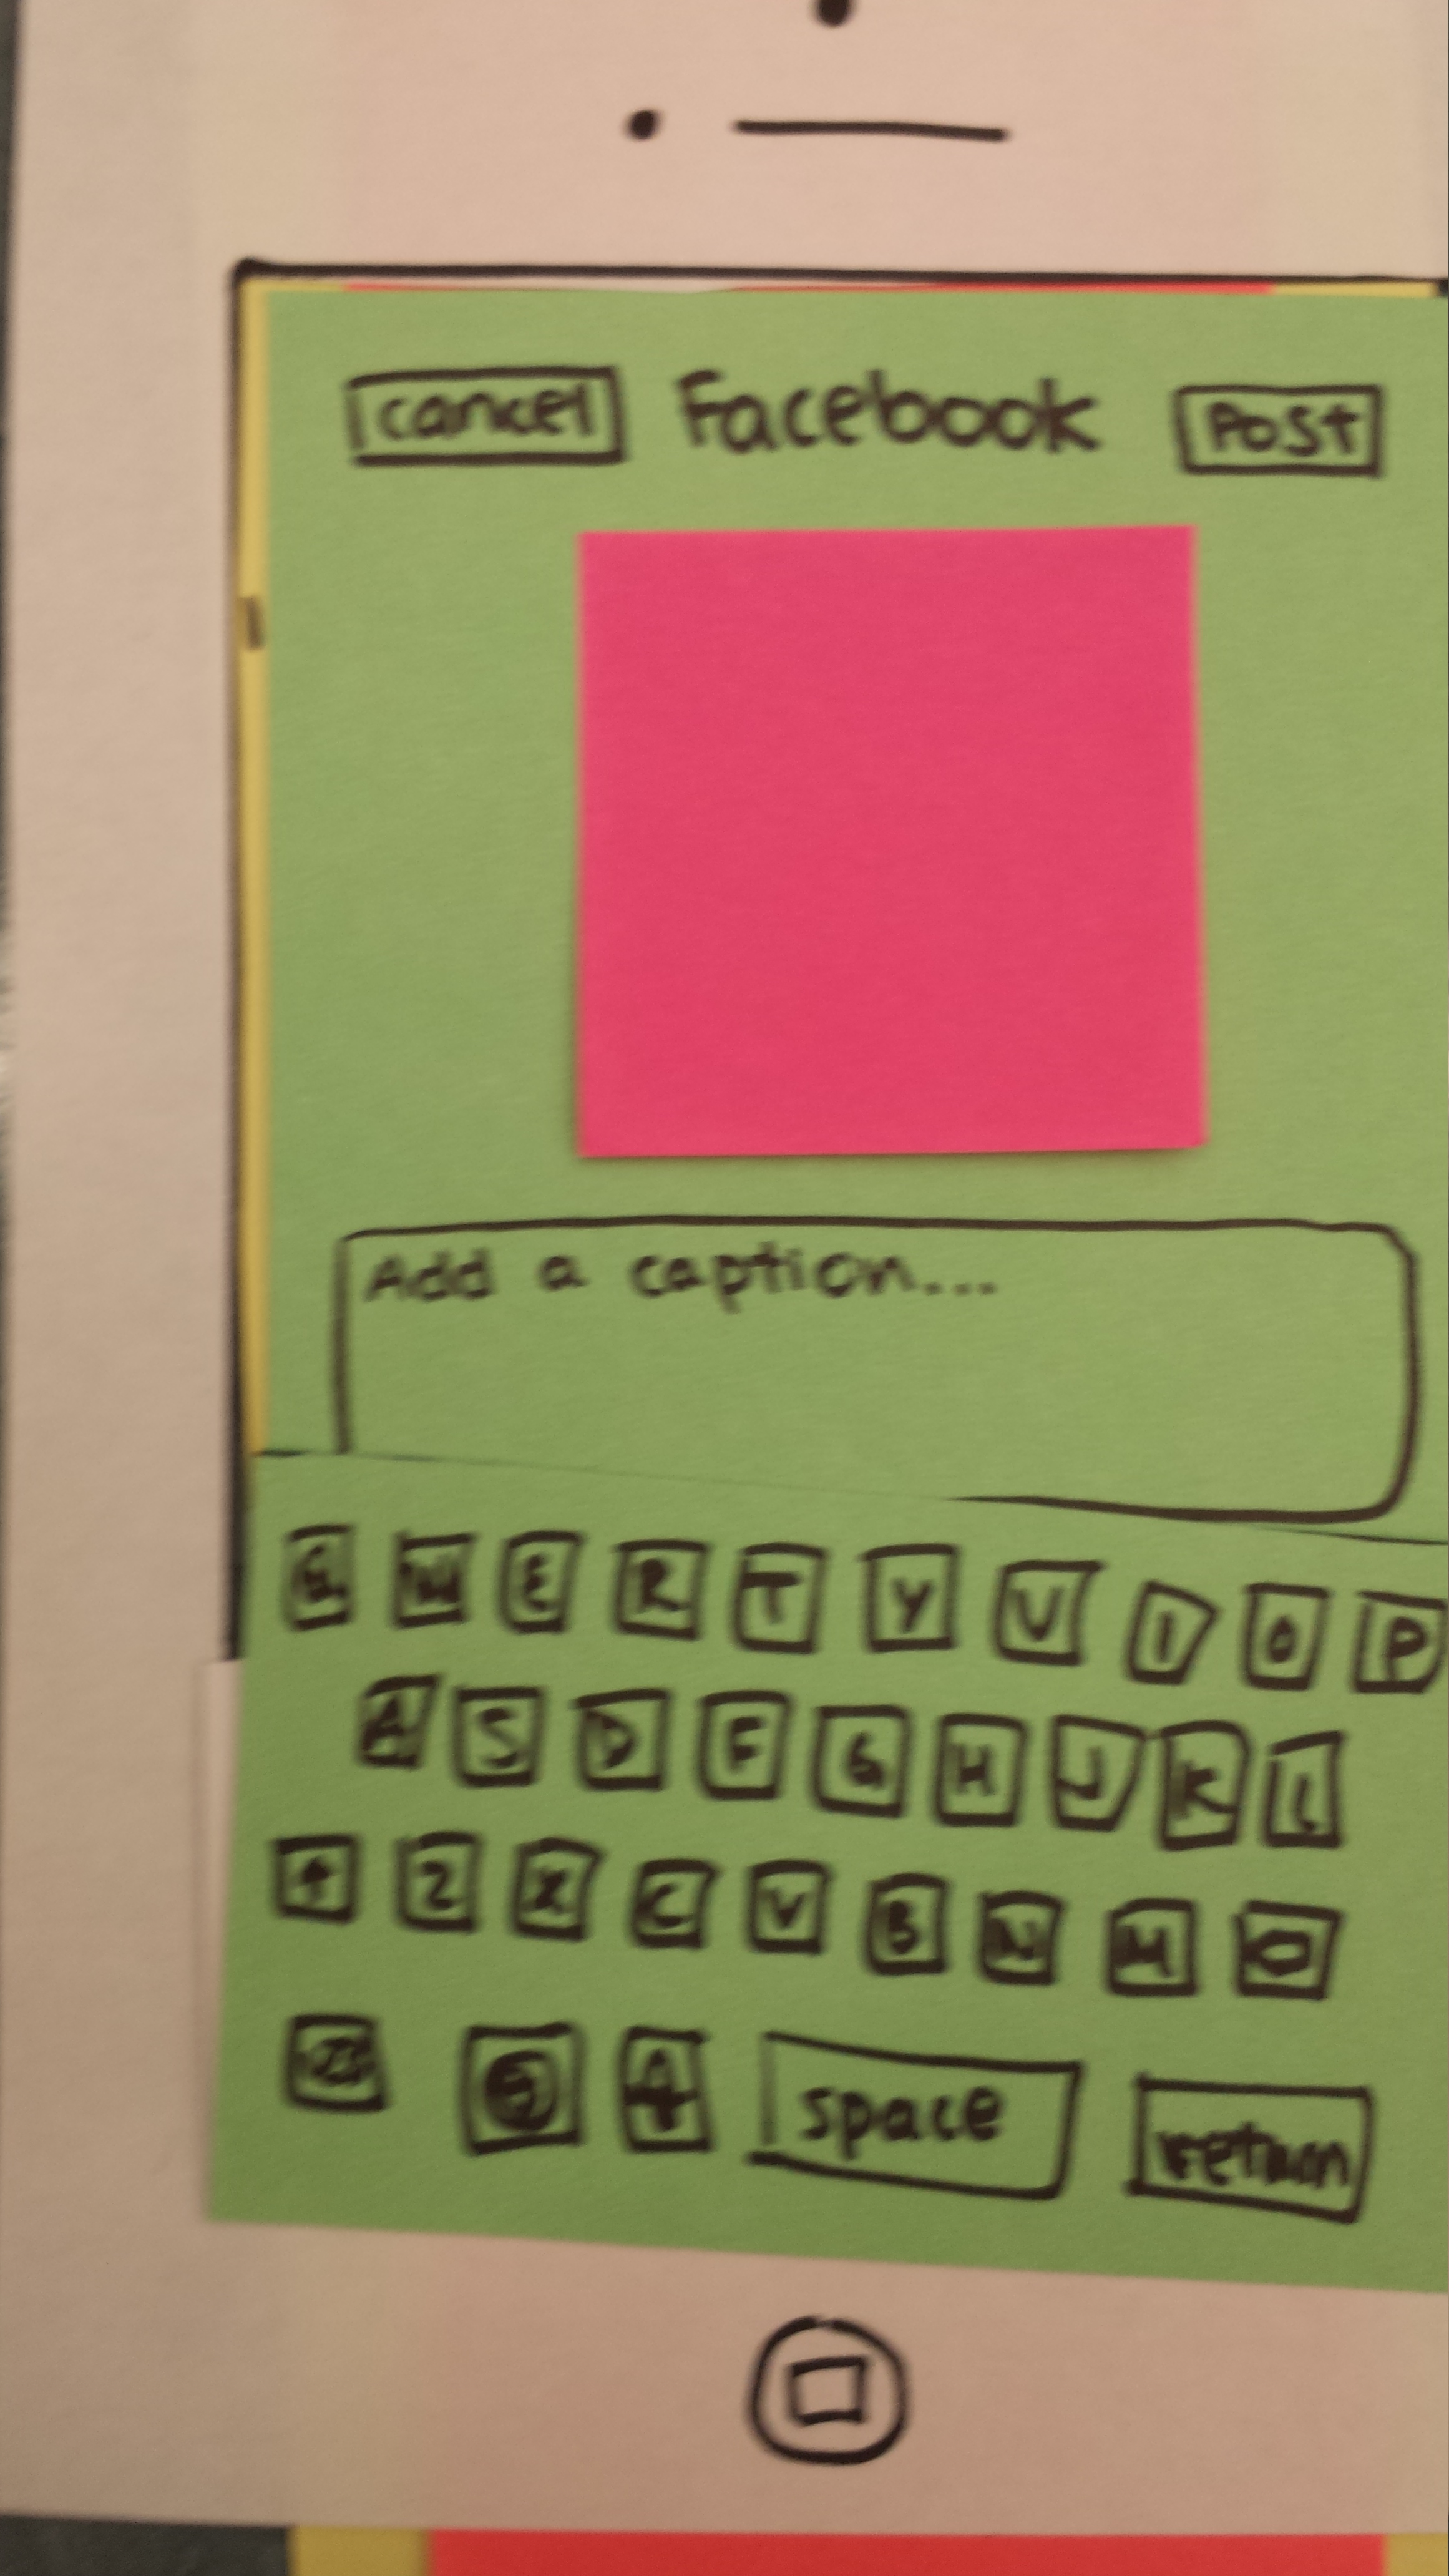 cancel Facebook Post
Add a caption...
Q W E R T Y U I O P
A S D F G H J K L
Z X C V B N M
space return